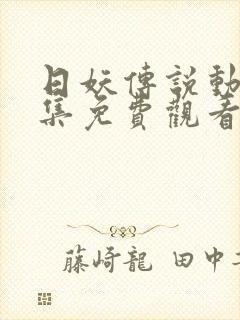 日妖傳說動
集免費觀看
藤崎龍 田中